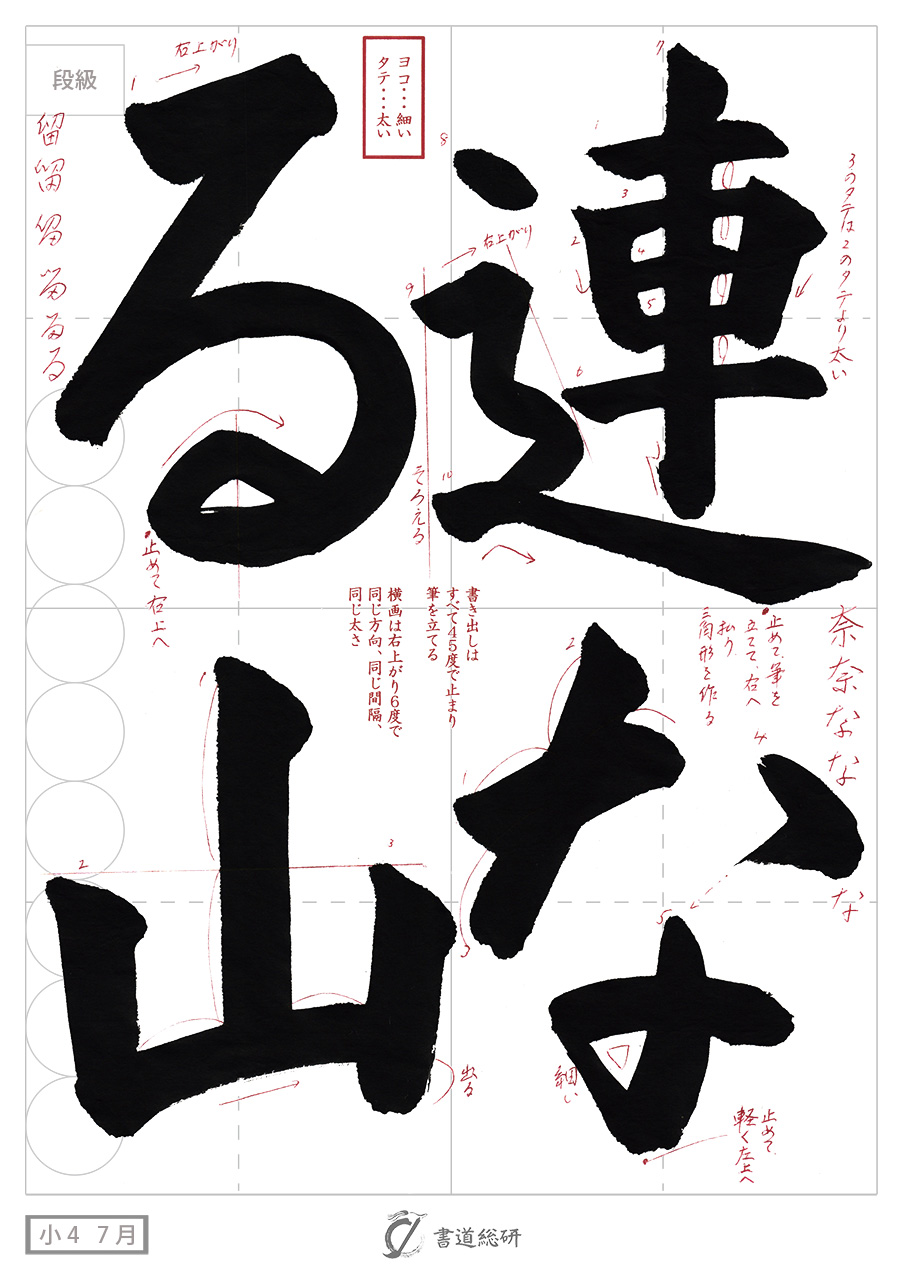 連なる山
段級
ヨコ・・・細い
タテ・・・太い
右上がり
右上がり
3のタテは2のタテより太い
そろえる
留留留留るる
止めて右上へ
書き出しは
すべて45度で止まり
筆を立てる
横画は右上がり6度で
同じ方向、同じ間隔、
同じ太さ
止めて、筆を
立てて、右へ
払う
三角形を作る
奈奈なな
な
出る
細い
止めて
軽く左上へ
1
2
3
4
5
6
7
8
9
10
1
1
2
3
4
5
1
2
3
小4 7月
書道総研